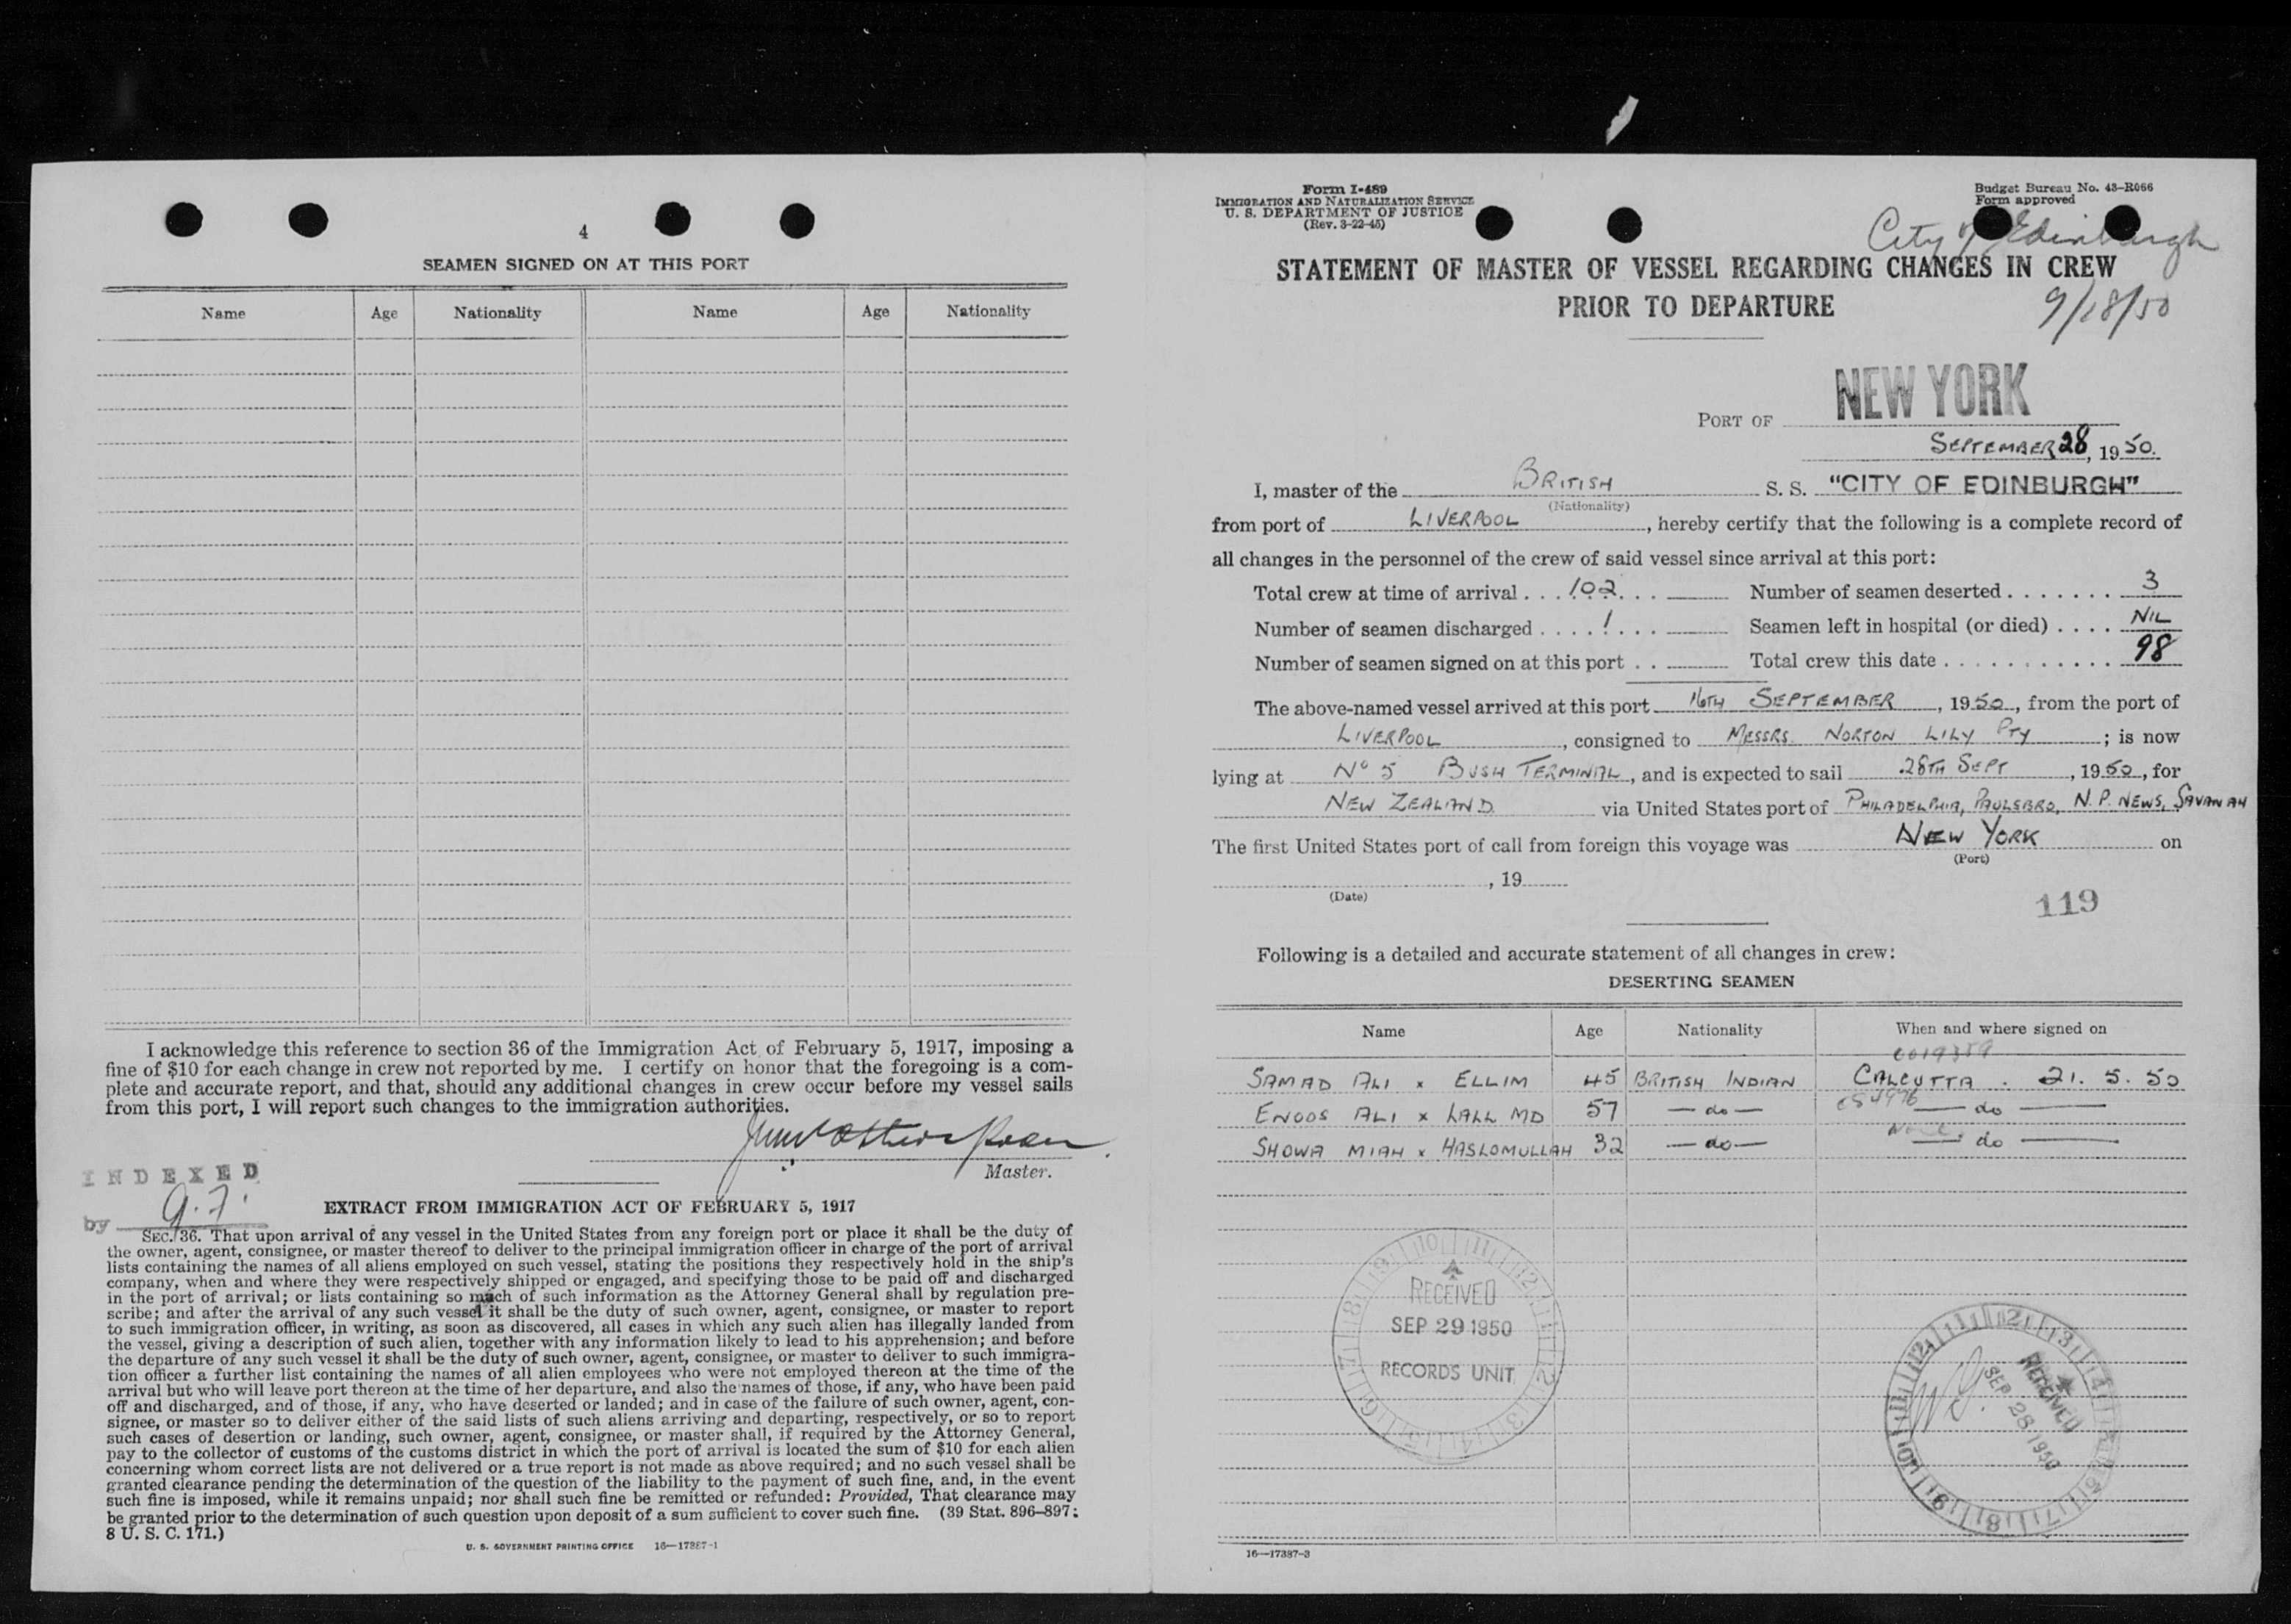 4
SEAMEN SIGNED ON AT THIS PORT
Name Age Nationality Name Age Nationality
I acknowledge this reference to section 36 of the Immigration Act of February 5, 1917, imposing a
fine of $10 for each change in crew not reported by me. I certify on honor that the foregoing is a com-
plete and accurate report, and that, should any additional changes in crew occur before my vessel sails
from this port, I will report such changes to the immigration authorities.
Master.
INDEXED
by
EXTRACT FROM IMMIGRATION ACT OF FEBRUARY 5, 1917
SEC. 36. That upon arrival of any vessel in the United States from any foreign port or place it shall be the duty of
the owner, agent, consignee, or master thereof to deliver to the principal immigration officer in charge of the port of arrival
lists containing the names of all aliens employed on such vessel, stating the positions they respectively hold in the ship's
company, when and where they were respectively shipped or engaged, and specifying those to be paid off and discharged
in the port of arrival; or lists containing so much of such information as the Attorney General shall by regulation pre-
scribe; and after the arrival of any such vessel it shall be the duty of such owner, agent, consignee, or master to report
to such immigration officer, in writing, as soon as discovered, all cases in which any such alien has illegally landed from
the vessel, giving a description of such alien, together with any information likely to lead to his apprehension; and before
the departure of any such vessel it shall be the duty of such owner, agent, consignee, or master to deliver to such immigra-
tion officer a further list containing the names of all alien employees who were not employed thereon at the time of the
arrival but who will leave port thereon at the time of her departure, and also the names of those, if any, who have been paid
off and discharged, and of those, if any, who have deserted or landed; and in case of the failure of such owner, agent, con-
signee, or master so to deliver either of the said lists of such aliens arriving and departing, respectively, or so to report
such cases of desertion or landing, such owner, agent, consignee, or master shall, if required by the Attorney General,
pay to the collector of customs of the customs district in which the port of arrival is located the sum of $10 for each alien
concerning whom correct lists are not delivered or a true report is not made as above required; and no such vessel shall be
granted clearance pending the determination of the question of the liability to the payment of such fine, and, in the event
such fine is imposed, while it remains unpaid; nor shall such fine be remitted or refunded: Provided, That clearance may
be granted prior to the determination of such question upon deposit of a sum sufficient to cover such fine. (39 Stat. 896–897;
8 U. S. C. 171.)
U. S. GOVERNMENT PRINTING OFFICE 16—17387-1
Form I-489
IMMIGRATION AND NATURALIZATION SERVICE
U. S. DEPARTMENT OF JUSTICE
(Rev. 3-22-45)
Budget Bureau No. 43-R066
Form approved
City of Edinburgh
STATEMENT OF MASTER OF VESSEL REGARDING CHANGES IN CREW
PRIOR TO DEPARTURE
9/18/50
PORT OF NEW YORK
SEPTEMBER 28, 1950.
I, master of the BRITISH S. S. "CITY OF EDINBURGH"
(Nationality)
from port of LIVERPOOL, hereby certify that the following is a complete record of
all changes in the personnel of the crew of said vessel since arrival at this port:
Total crew at time of arrival . . . 102 . . . Number of seamen deserted . . . . . . . 3
Number of seamen discharged . . . . 1 . . . Seamen left in hospital (or died) . . . . NIL
Number of seamen signed on at this port . . Total crew this date . . . . . . . . . . . . 98
The above-named vessel arrived at this port 16TH SEPTEMBER, 1950, from the port of
LIVERPOOL, consigned to MESSRS. NORTON LILY PTY; is now
lying at No 5 BUSH TERMINAL, and is expected to sail 28TH SEPT, 1950, for
NEW ZEALAND via United States port of PHILADELPHIA, PAULSBRO, N.P. NEWS, SAVANAH
The first United States port of call from foreign this voyage was NEW YORK on
(Port)
, 19
(Date)
119
Following is a detailed and accurate statement of all changes in crew:
DESERTING SEAMEN
Name Age Nationality When and where signed on
SAMAD ALI x ELLIM 45 BRITISH INDIAN CALCUTTA . 21. 5. 50
ENOOS ALI x LALL MD 57 — do — — do —
SHOWA MIAH x HASLOMULLAH 32 — do — — do —
RECEIVED
SEP 29 1950
RECORDS UNIT
RECEIVED
SEP 28 1950
16—17387-3